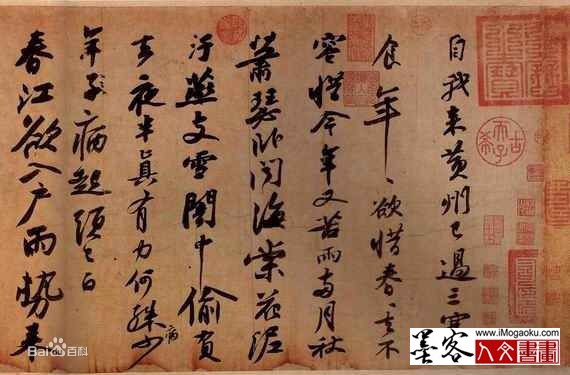 自我来黄州已過三寒
食年〻欲惜春〻去不
容惜今年又苦雨兩月秋
蕭瑟卧聞海棠花泥
汙燕支雪闇中偷負
去夜半真有力何殊少
病
年子病起頭已白
春江欲入户雨勢来
古希天子
Bai百科
www.iMogaoku.com
墨客